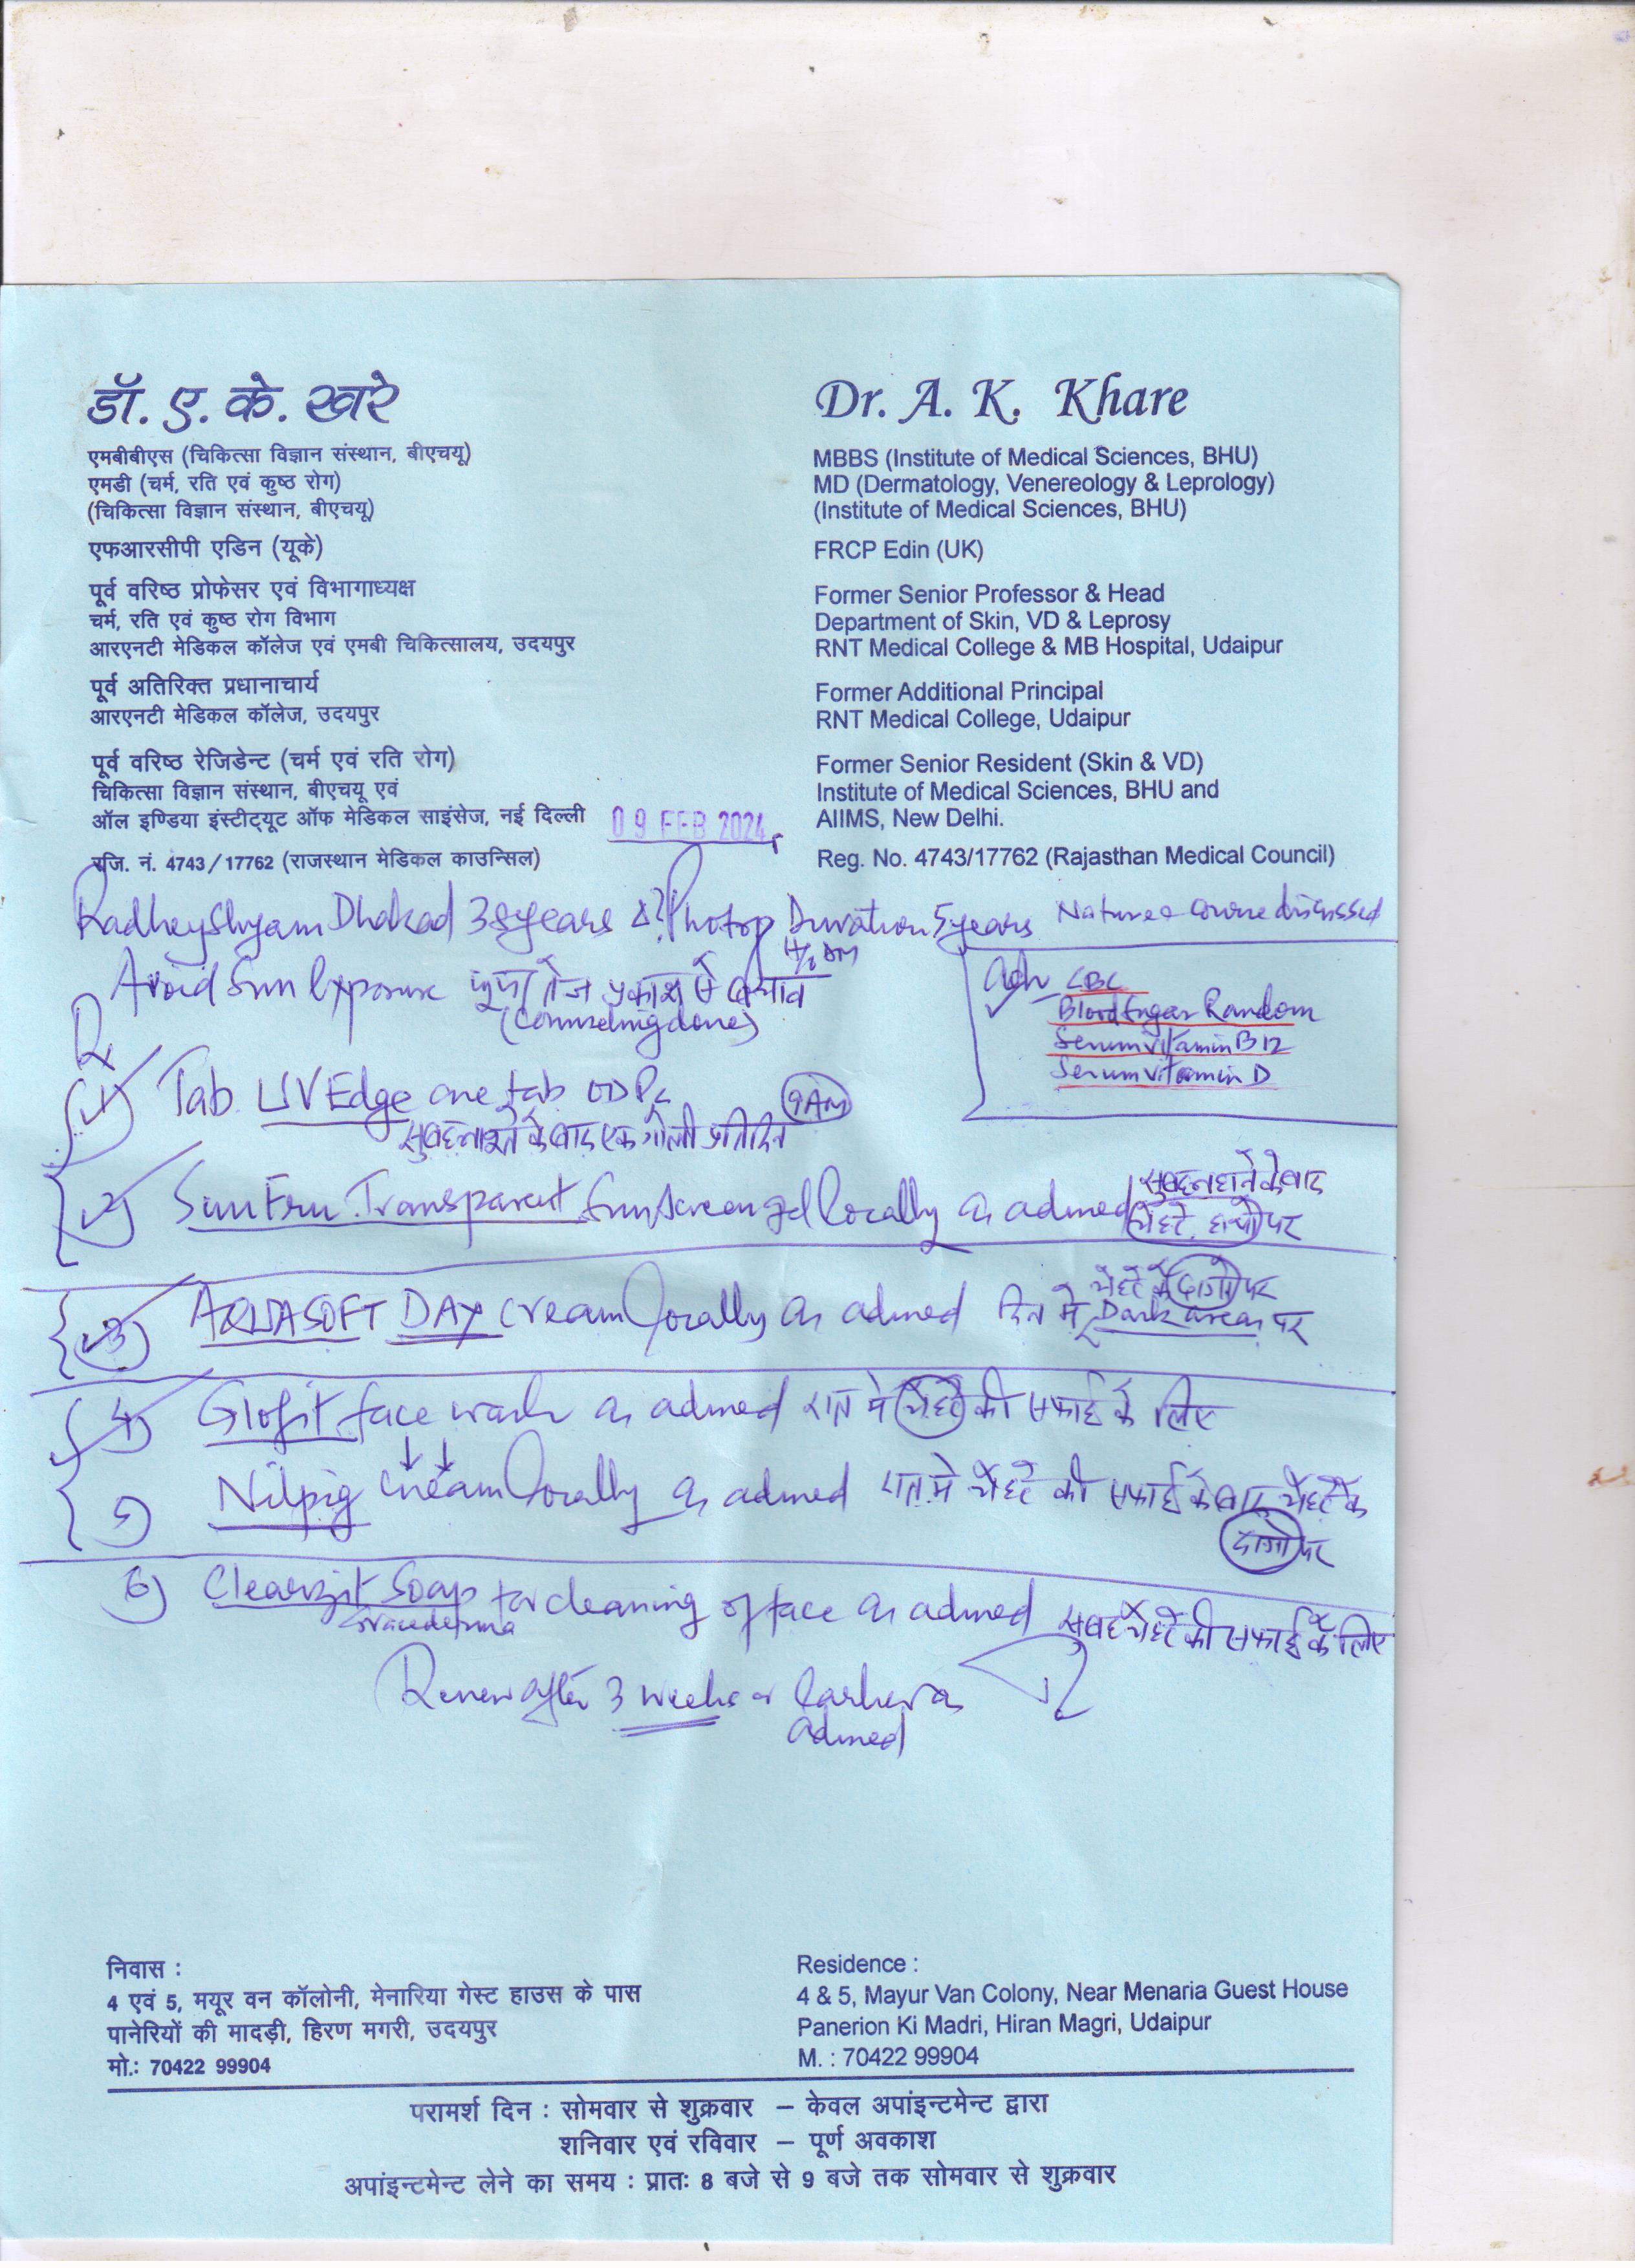 डॉ. ए. के. खरे
एमबीबीएस (चिकित्सा विज्ञान संस्थान, बीएचयू)
एमडी (चर्म, रति एवं कुष्ठ रोग)
(चिकित्सा विज्ञान संस्थान, बीएचयू)
एफआरसीपी एडिन (यूके)
पूर्व वरिष्ठ प्रोफेसर एवं विभागाध्यक्ष
चर्म, रति एवं कुष्ठ रोग विभाग
आरएनटी मेडिकल कॉलेज एवं एमबी चिकित्सालय, उदयपुर
पूर्व अतिरिक्त प्रधानाचार्य
आरएनटी मेडिकल कॉलेज, उदयपुर
पूर्व वरिष्ठ रेजिडेन्ट (चर्म एवं रति रोग)
चिकित्सा विज्ञान संस्थान, बीएचयू एवं
ऑल इण्डिया इंस्टीट्यूट ऑफ मेडिकल साइंसेज, नई दिल्ली
रजि. नं. 4743/17762 (राजस्थान मेडिकल काउन्सिल)
Dr. A. K. Khare
MBBS (Institute of Medical Sciences, BHU)
MD (Dermatology, Venereology & Leprology)
(Institute of Medical Sciences, BHU)
FRCP Edin (UK)
Former Senior Professor & Head
Department of Skin, VD & Leprosy
RNT Medical College & MB Hospital, Udaipur
Former Additional Principal
RNT Medical College, Udaipur
Former Senior Resident (Skin & VD)
Institute of Medical Sciences, BHU and
AIIMS, New Delhi.
Reg. No. 4743/17762 (Rajasthan Medical Council)
09 FEB 2024
Radheyshyam Dhakad 38 years Duration 5 years Nature & course discussed
Avoid Sun Exposure तेज प्रकाश से बचाव
(Counseling done)
Adv CBC
Blood Sugar Random
Serum Vitamin B12
Serum Vitamin D
Rx
1) Tab UV Edge one tab OD PC 9 AM
सुबह नाश्ते के बाद एक गोली प्रतिदिन
2) Transparent Sunscreen gel locally as advised सुबह नहाने के बाद
चेहरे, हाथों पर
3) AQUASOFT DAY Cream locally as advised दिन में चेहरे के दागों पर
Dark areas पर
4) Glofit face wash as advised रात में चेहरे की सफाई के लिए
5) Nilpig cream locally as advised रात में चेहरे की सफाई के बाद चेहरे के
दागों पर
6) Clearzit Soap for cleaning of face as advised सुबह चेहरे की सफाई के लिए
after 3 weeks or Earlier as
advised
निवास :
4 एवं 5, मयूर वन कॉलोनी, मेनारिया गेस्ट हाउस के पास
पानेरियों की मादड़ी, हिरण मगरी, उदयपुर
मो.: 70422 99904
Residence :
4 & 5, Mayur Van Colony, Near Menaria Guest House
Panerion Ki Madri, Hiran Magri, Udaipur
M. : 70422 99904
परामर्श दिन : सोमवार से शुक्रवार – केवल अपांइन्टमेन्ट द्वारा
शनिवार एवं रविवार – पूर्ण अवकाश
अपांइन्टमेन्ट लेने का समय : प्रातः 8 बजे से 9 बजे तक सोमवार से शुक्रवार